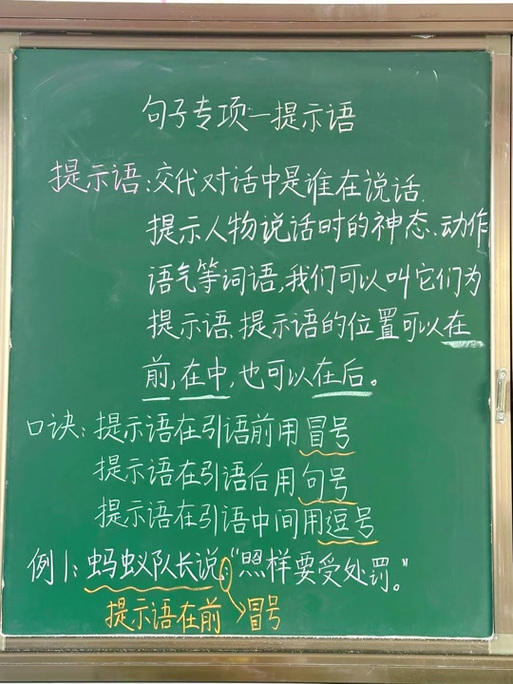 句子专项—提示语
提示语:交代对话中是谁在说话.
提示人物说话时的神态.动作
语气等词语,我们可以叫它们为
提示语.提示语的位置可以在
前,在中,也可以在后。
口诀:提示语在引语前用冒号
提示语在引语后用句号
提示语在引语中间用逗号
例1:蚂蚁队长说:“照样要受处罚。”
提示语在前 冒号